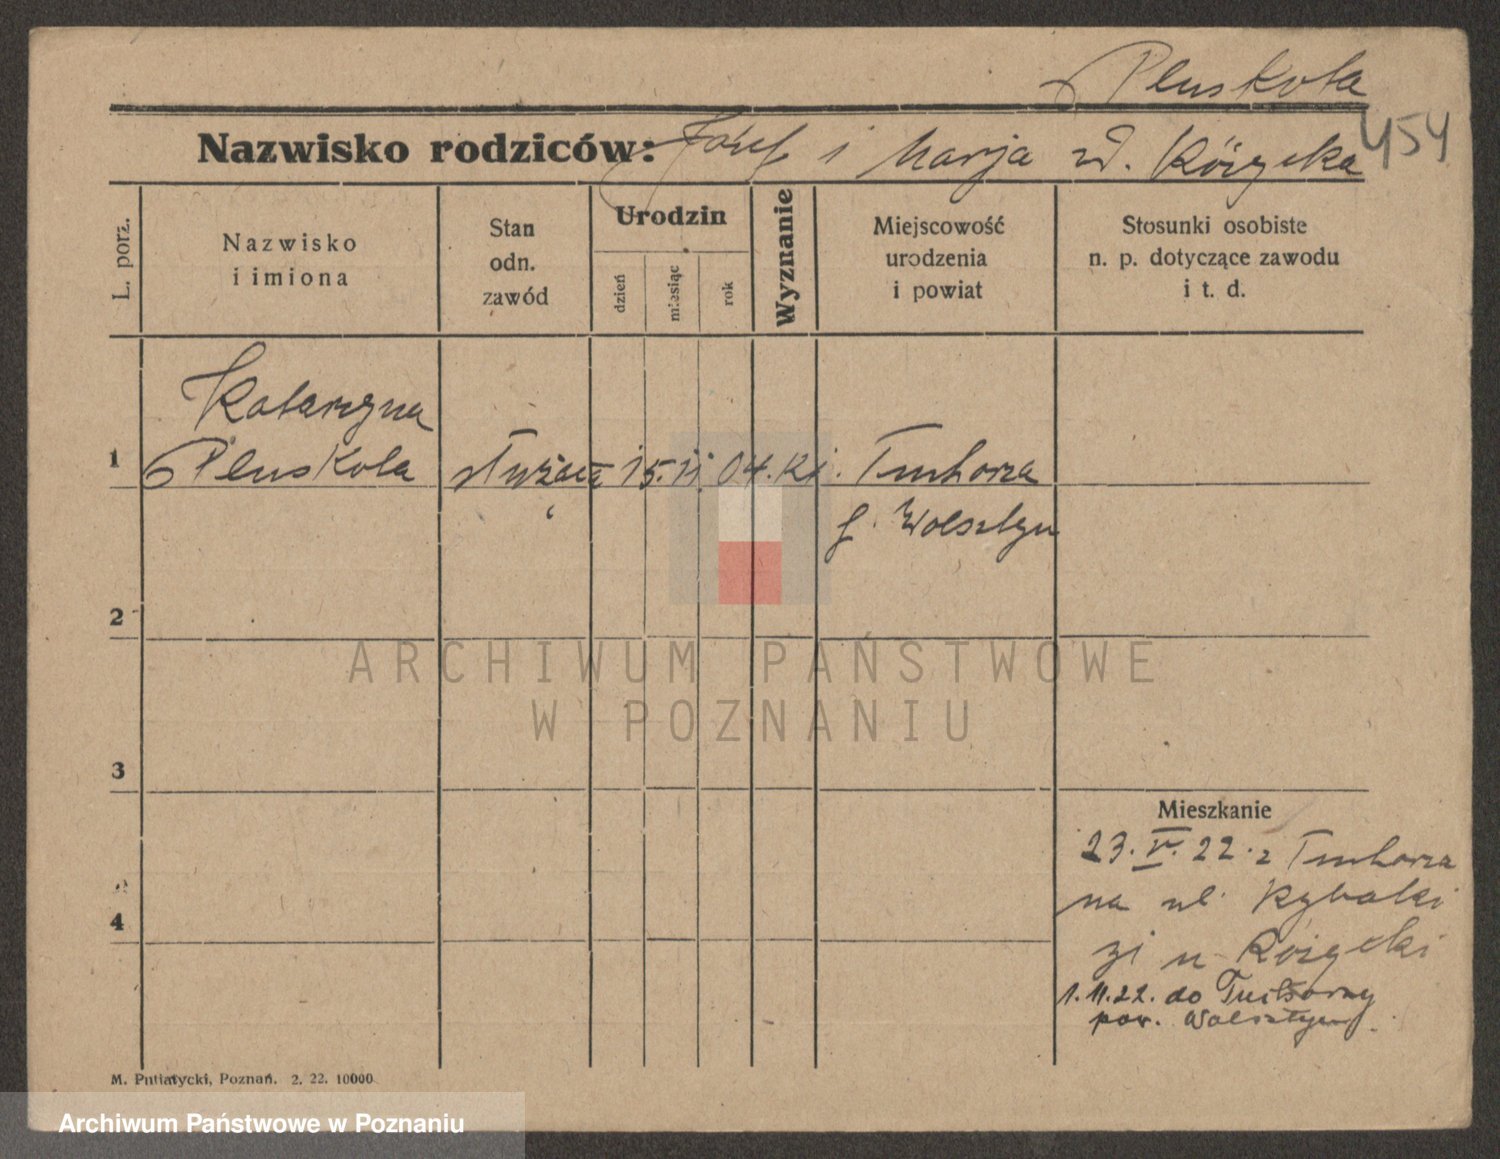 Pluskota
454
Nazwisko rodziców: Józef i Marja zd. Kózycka
L. porz.
Nazwisko
i imiona
Stan
odn.
zawód
Urodzin
dzień
miesiąc
rok
Wyznanie
Miejscowość
urodzenia
i powiat
Stosunki osobiste
n. p. dotyczące zawodu
i t. d.
Katarzyna
1 Pluskota służąca 15. 11 04. kt. Tuchorza
p. Wolsztyn
2
ARCHIWUM PAŃSTWOWE
W POZNANIU
3
Mieszkanie
23. V. 22. z Tuchorza
na ul.
4
u
1.11.22. do Tuchorzy
pow. Wolsztyn.
M. Putiatycki, Poznań. 2. 22. 10000
Archiwum Państwowe w Poznaniu